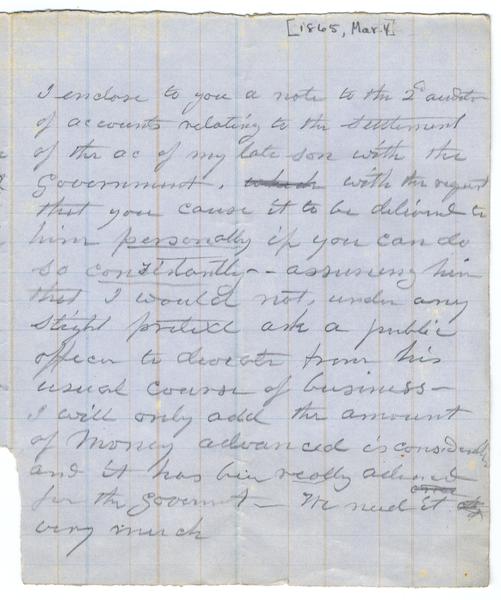 [1865, Mar. 4]
I enclose to you a note to the 2d auditor
of accounts relating to the settlement
of the ac of my late son with the
Government, which with the request
that you cause it to be delivered to
him personally if you can do
so consistantly -- assuring him
that I would not, under any
slight pretext ask a public
officer to deviate from his
usual course of business -
I will only add the amount
of Money advanced is considerable
and it has been really advanced
for the Government - We need it
very much